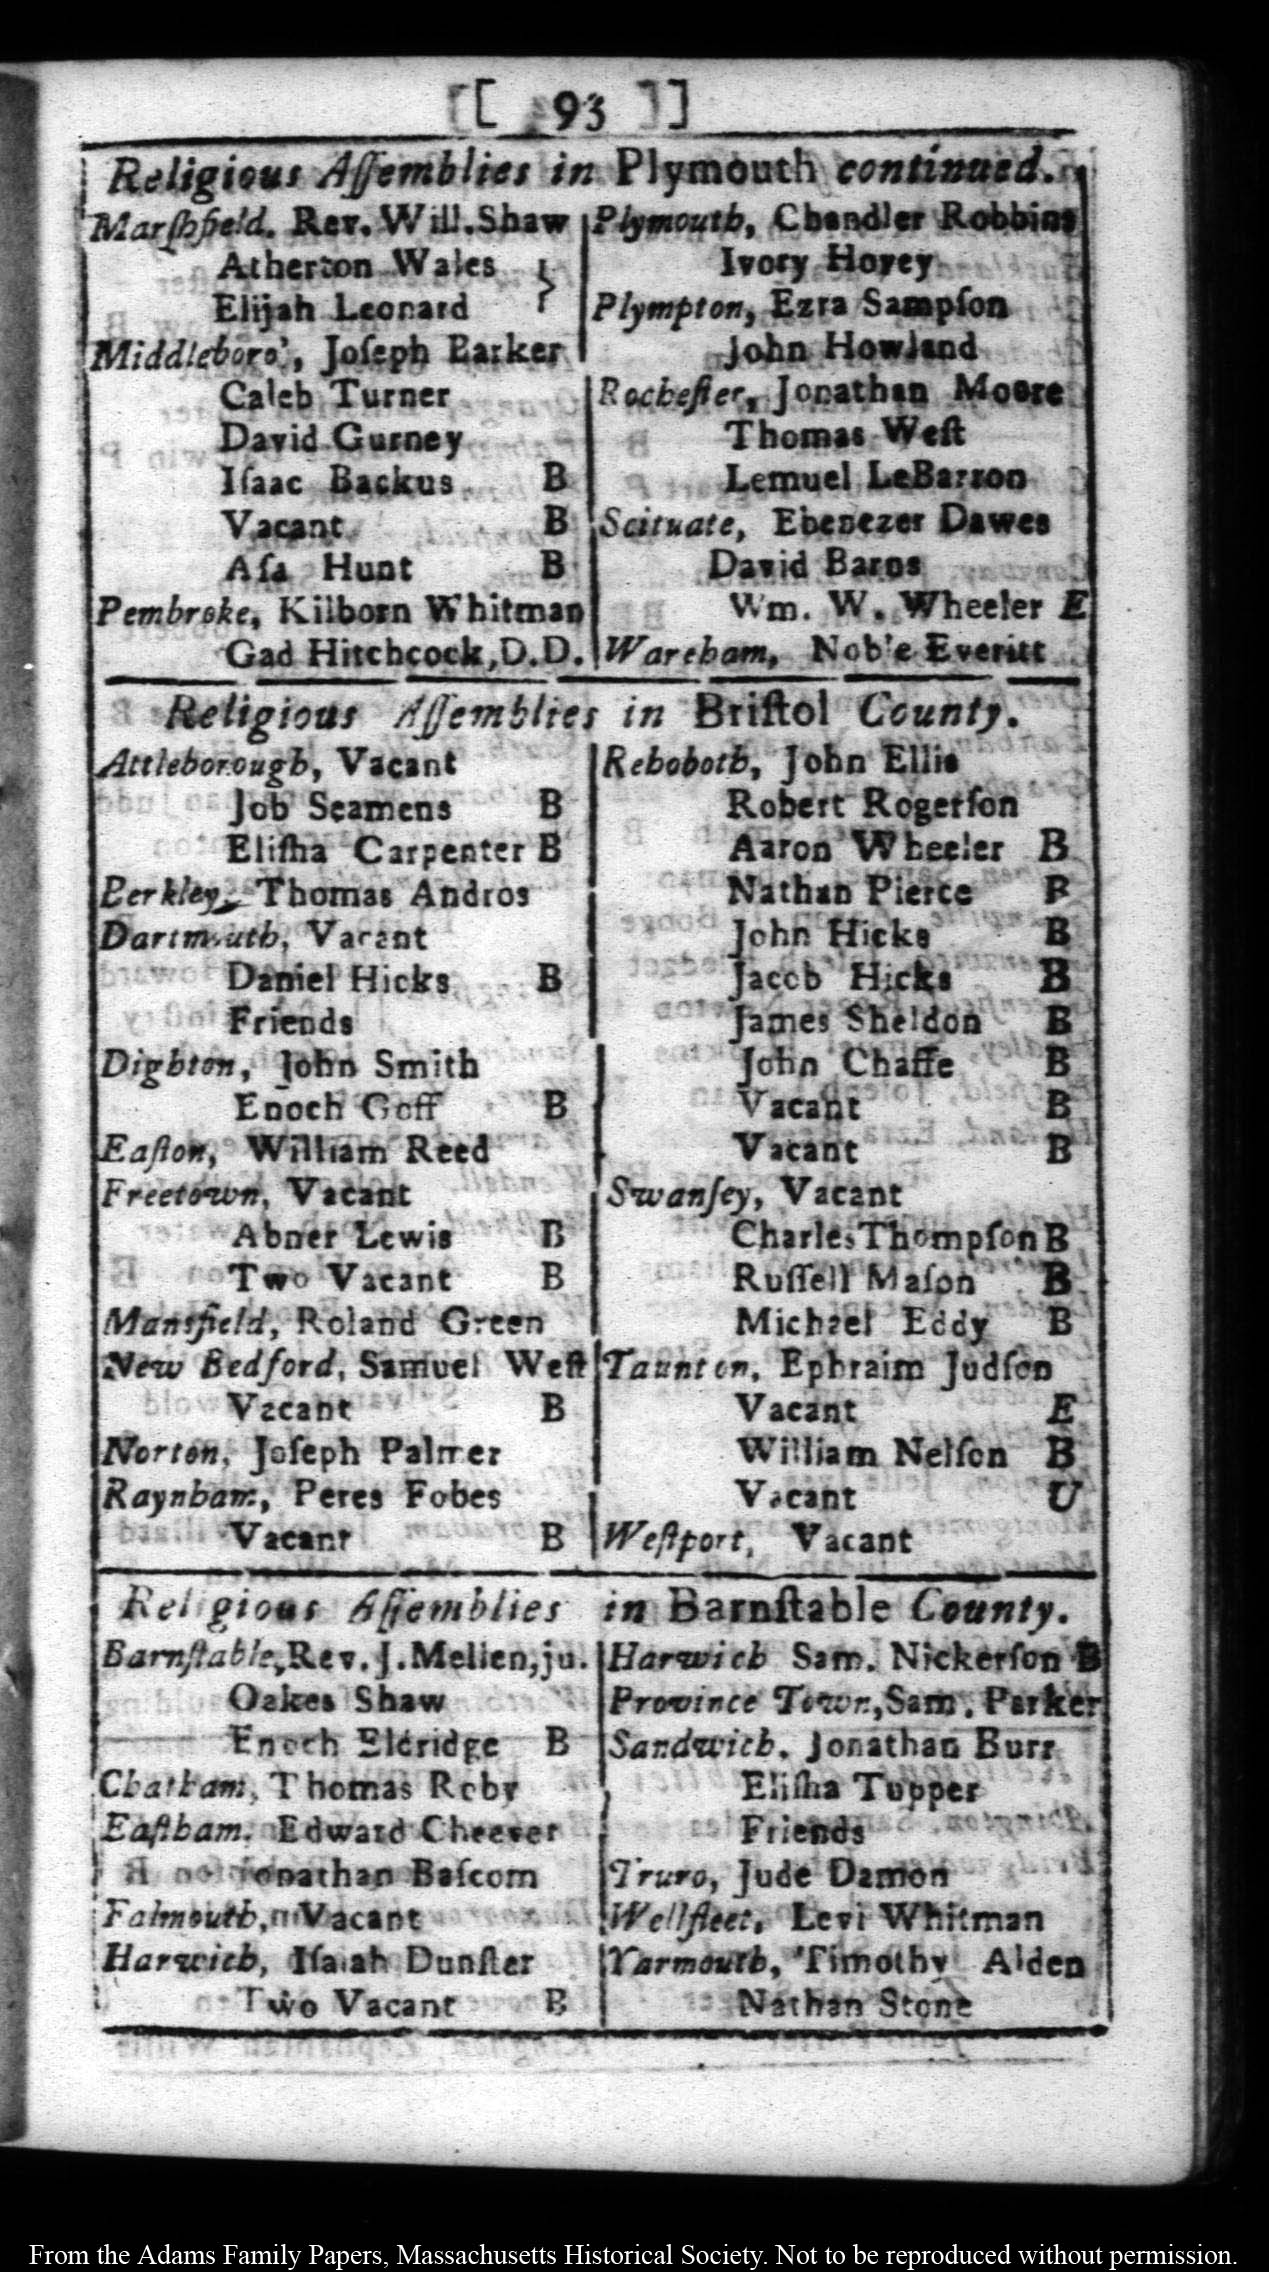 [ 93 ]
Religious Aſſemblies in Plymouth continued.
Marſhfield. Rev. Will. Shaw
Atherton Wales }
Elijah Leonard
Middleboro', Joſeph Barker
Caleb Turner
David Gurney
Iſaac Backus B
Vacant B
Aſa Hunt B
Pembroke, Kilborn Whitman
Gad Hitchcock, D.D.
Plymouth, Chandler Robbins
Ivory Hovey
Plympton, Ezra Sampſon
John Howland
Rocheſter, Jonathan Moore
Thomas Weſt
Lemuel LeBarron
Scituate, Ebenezer Dawes
David Barns
Wm. W. Wheeler E
Wareham, Noble Everitt
Religious Aſſemblies in Briſtol County.
Attleborough, Vacant
Job Seamens B
Eliſha Carpenter B
Berkley, Thomas Andros
Dartmouth, Vacant
Daniel Hicks B
Friends
Dighton, John Smith
Enoch Goff B
Eaſton, William Reed
Freetown, Vacant
Abner Lewis B
Two Vacant B
Mansfield, Roland Green
New Bedford, Samuel Weſt
Vacant B
Norton, Joſeph Palmer
Raynham, Peres Fobes
Vacant B
Rehoboth, John Ellis
Robert Rogerſon
Aaron Wheeler B
Nathan Pierce B
John Hicks B
Jacob Hicks B
James Sheldon B
John Chaffe B
Vacant B
Vacant B
Swanſey, Vacant
Charles Thompſon B
Ruſſell Maſon B
Michael Eddy B
Taunton, Ephraim Judſon
Vacant E
William Nelſon B
Vacant U
Weſtport, Vacant
Religious Aſſemblies in Barnſtable County.
Barnſtable, Rev. J. Mellen, ju.
Oakes Shaw
Enoch Eldridge B
Chatham, Thomas Roby
Eaſtham, Edward Cheever
Jonathan Baſcom
Falmouth, Vacant
Harwich, Iſaiah Dunſter
Two Vacant B
Harwich Sam. Nickerſon B
Province Town, Sam. Parker
Sandwich, Jonathan Burr
Eliſha Tupper
Friends
Truro, Jude Damon
Wellfleet, Levi Whitman
Yarmouth, Timothy Alden
Nathan Stone
From the Adams Family Papers, Massachusetts Historical Society. Not to be reproduced without permission.